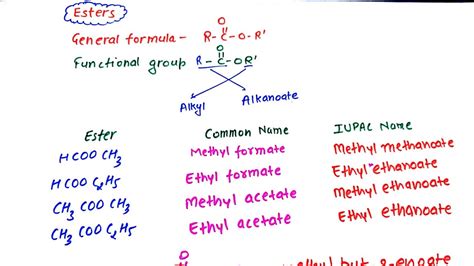 Esters
O
General formula - R-C-O-R'
O
Functional group R-C-OR'
Alkyl Alkanoate
Ester Common Name IUPAC Name
HCOOCH3 Methyl formate Methyl methanoate
HCOOC2H5 Ethyl formate Ethyl ethanoate
CH3COOCH3 Methyl acetate Methyl ethanoate
CH3COOC2H5 Ethyl acetate Ethyl ethanoate
O